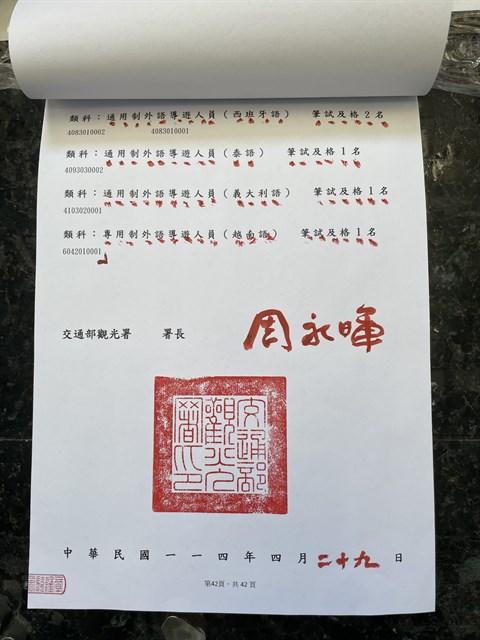 類科：通用制外語導遊人員（西班牙語） 筆試及格2名
4083010002 4083010001
類科：通用制外語導遊人員（泰語） 筆試及格1名
4093030002
類科：通用制外語導遊人員（義大利語） 筆試及格1名
4103020001
類科：專用制外語導遊人員（越南語） 筆試及格1名
6042010001
交通部觀光署 署長 周永暉
交通部
觀光
署印
中華民國一一四年四月二十九日
第42頁，共42頁